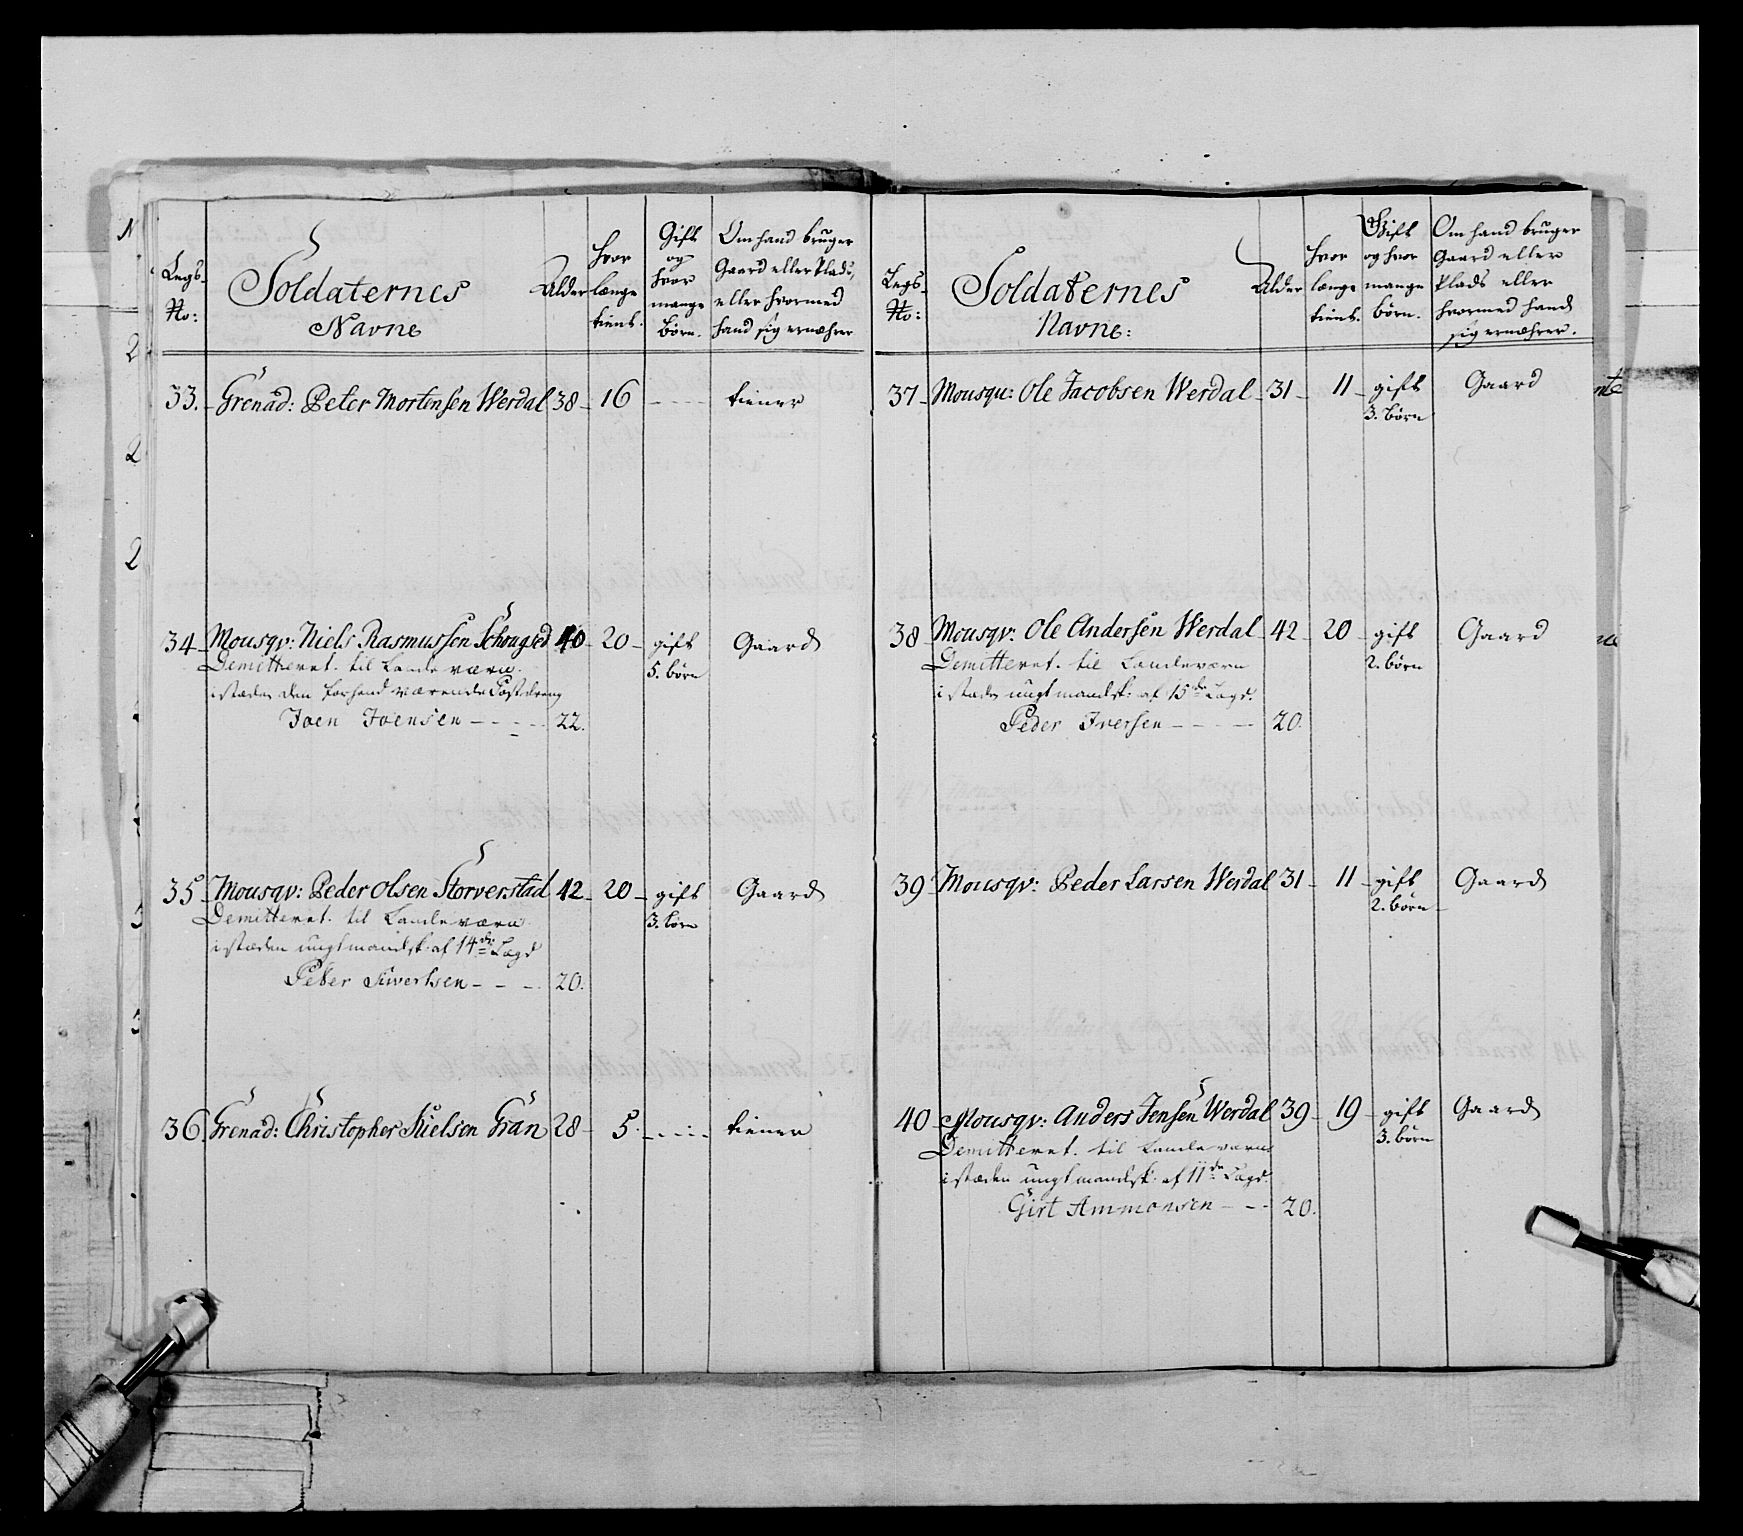 Legs-
No:
Soldaternes
Navne
Alder
hvor
længe
tient.
Gift
og
hvor
mange
Børn.
Om hand bruger
Gaard eller Plads,
eller hvormed
hand sig ernæhrer
33. Grenad: Peter Mortensen Werdal 38 16 - - - tiener
34 Mousqv: Niels Rasmussen 40 20 gift Gaard
5. børn
Demitteret. til Landeværn.
istæden den forhend værende Postdreng
Joen Joensen - - - - 22.
35 Mousqv: Peder Olsen Storverstad 42 20 gift Gaard
3. børn
Demitteret. til Landeværn.
istæden ungt mandsk: af 14de Lægd
Peter Siwertsen - - - 20.
36 Grenad: Christopher Nielsen Gran 28 5. - - - tiener
Legs-
No:
Soldaternes
Navne:
Alder
hvor
længe
tient.
Gift
og hvor
mange
børn.
Om hand bruger
Gaard eller
Plads eller
hvormed hand
sig ernæhrer.
37 Mousqu: Ole Jacobsen Werdal 31 11 gift Gaard
3. børn
38 Mousqv: Ole Andersen Werdal 42 20 gift Gaard
2. børn
Demitteret. til Landeværn
istæden ungt mandsk: af 15de Lægd.
Peder Iversen - - - - 20.
39 Mousqv: Peder Larsen Werdal 31 11 gift Gaard
2. børn
40 Mousqv: Anders Jensen Werdal 39 19 gift Gaard
3. børn
Demitteret. til Landeværn
istæden ungt mandsk. af 11de Lægd.
Girt Ammonsen - - - 20.